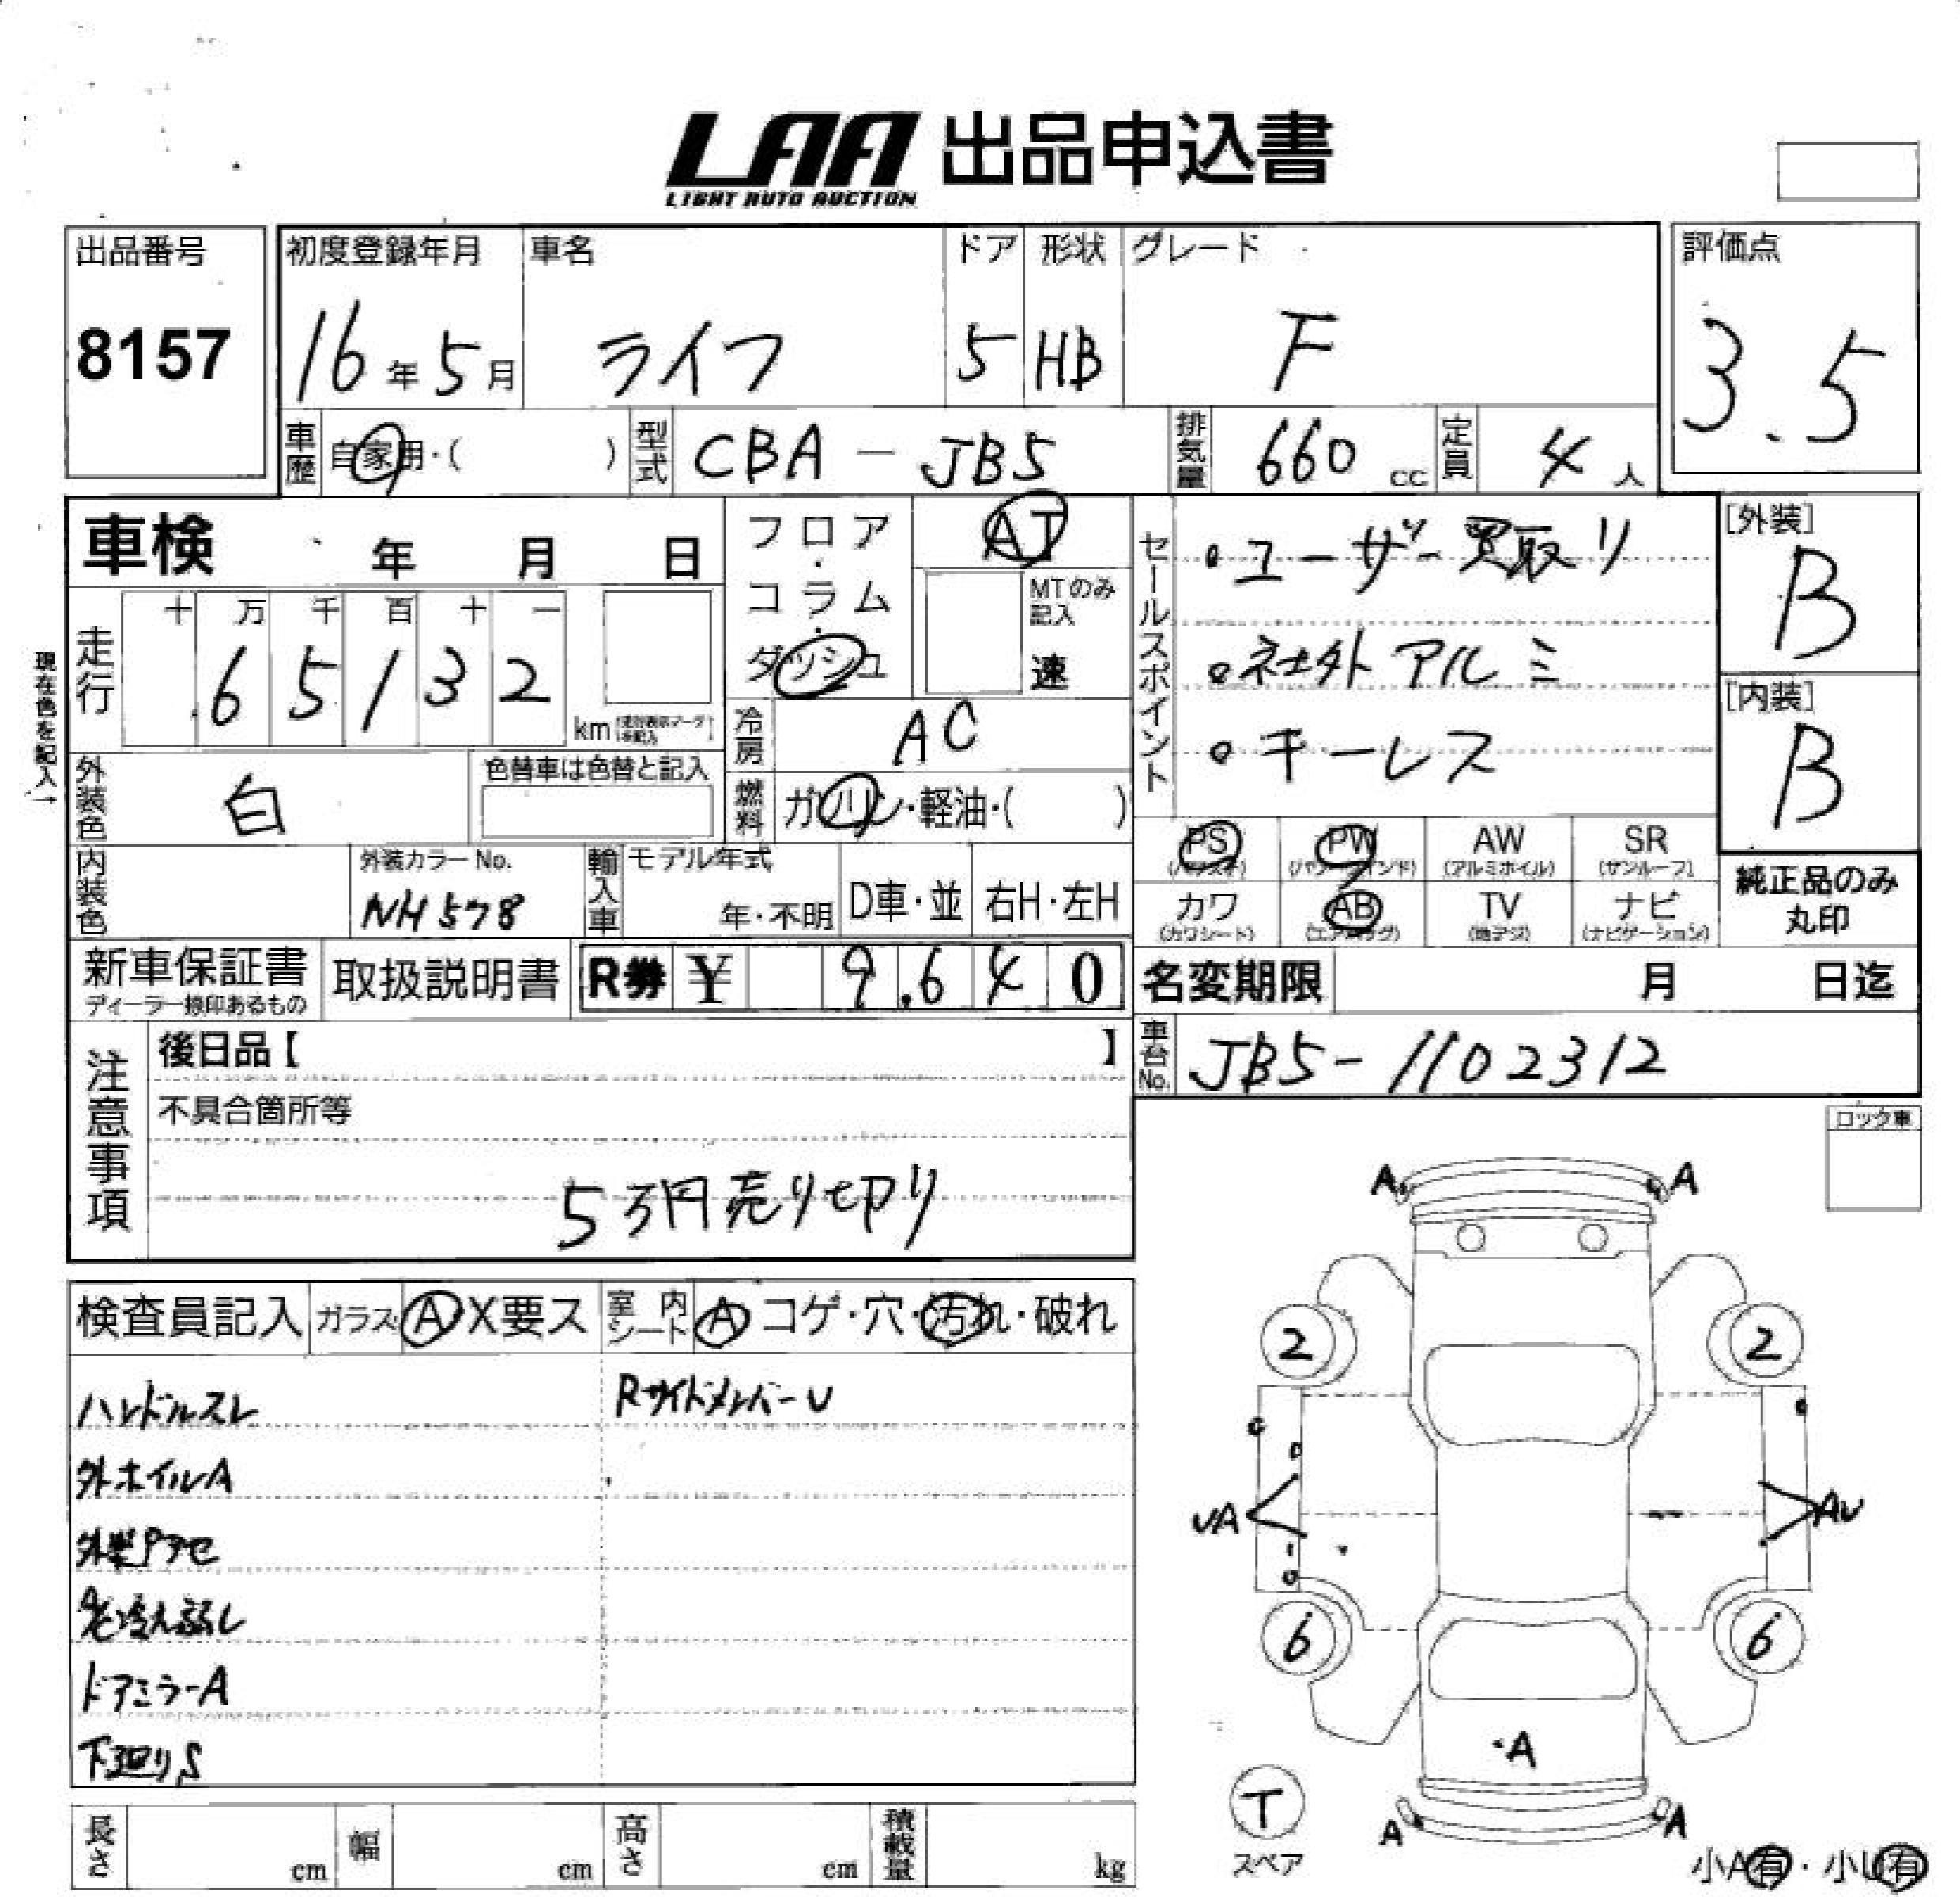 LAA 出品申込書
LIGHT AUTO AUCTION
出品番号
8157
初度登録年月
16年5月
車名
ライフ
ドア
5
形状
HB
グレード
F
評価点
3.5
車歴 自家用・( )
型式 CBA-JB5
排気量 660 cc
定員 4 人
車検 年 月 日
フロア・コラム・ダッシュ
AT
MTのみ記入
速
走行
十 万 千 百 十 一
65132
km
現在色を記入→
冷房 AC
燃料 ガソリン・軽油・( )
外装色 白
色替車は色替と記入
内装色
外装カラーNo.
NH578
輸入車 モデル年式
年・不明 D車・並 右H・左H
セールスポイント
・ユーザー買取り
・社外アルミ
・キーレス
[外装]
B
[内装]
B
PS PW AW SR
(パワステ) (パワーウインド) (アルミホイル) (サンルーフ)
カワ AB TV ナビ
(カワシート) (エアバッグ) (地デジ) (ナビゲーション)
純正品のみ
丸印
新車保証書
ディーラー捺印あるもの
取扱説明書
R券 ¥ 9.640
名変期限 月 日迄
車台No. JB5-1102312
注意事項
後日品【 】
不具合箇所等
5万円売り切り
ロック車
検査員記入 ガラス A X要ス 室内シート A コゲ・穴・汚れ・破れ
ハンドルスレ
外ホイルA
ドアミラーA
下廻りS
RサイドメンバーU
A A
2 2
UA AU
6 6
A
T
スペア
A A
小A有・小U有
長さ cm 幅 cm 高さ cm 積載量 kg